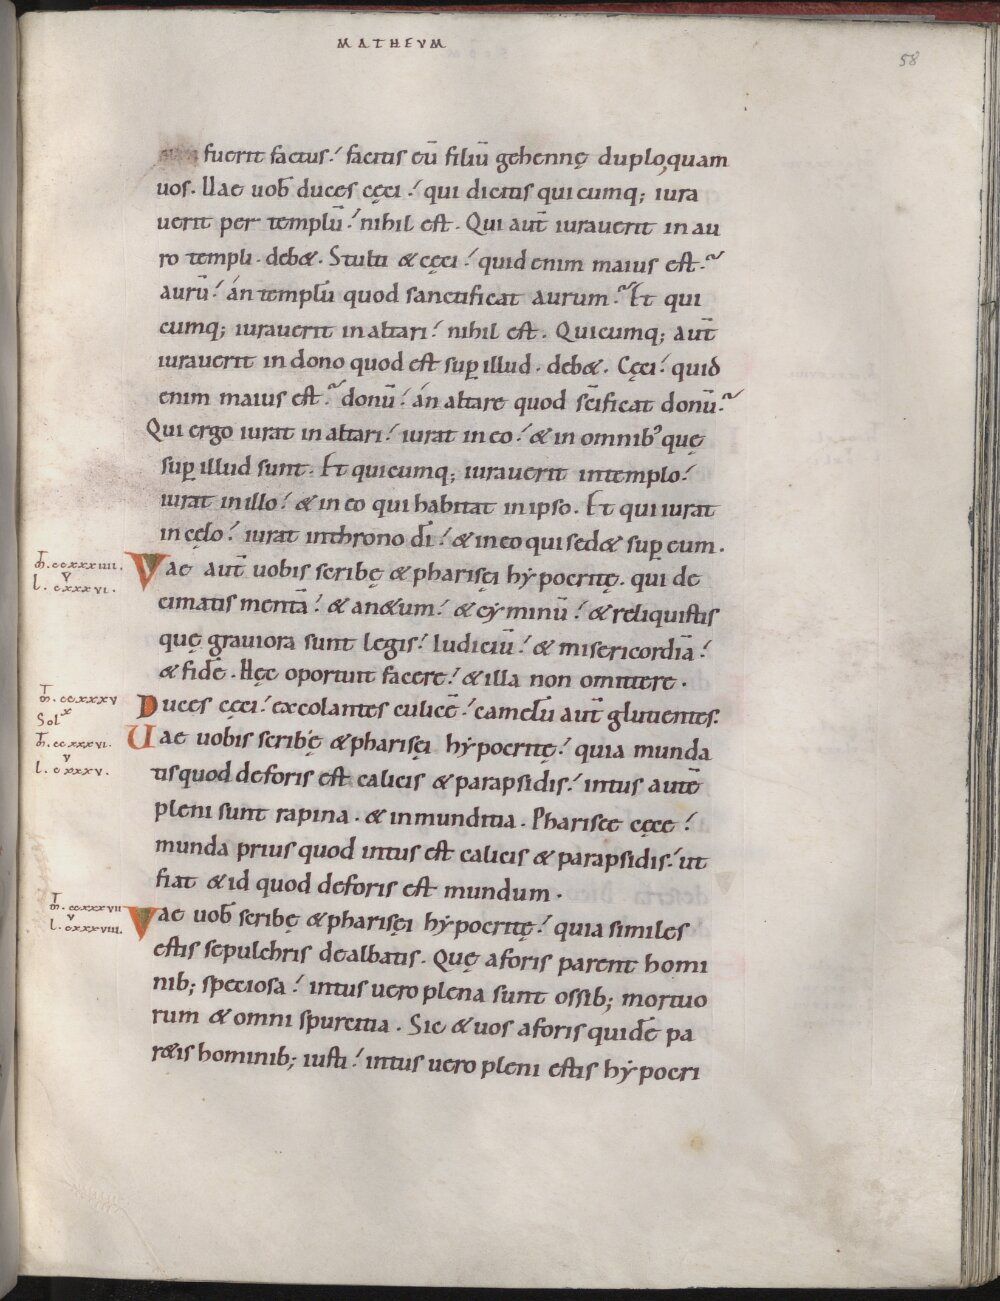 MATHEVM
58
fuerit factus: facitis eū filiū gehennę duplo quam
uos. Uae uob̄ duces cęci: qui dicitis quicumq; iura
uerit per templū: nihil est. Qui aut̄ iurauerit in au
ro templi. deb&. Stulti & cęci: quid enim maius est?
aurū: án templū quod sanctificat aurum? Et qui
cumq; iurauerit in altari: nihil est. Quicumq; aut̄
iurauerit in dono quod est suꝑ illud. deb&. Cęci: quid
enim maius est? donū: án altare quod sc̄ificat donū?
Qui ergo iurat in altari: iurat in eo: & in omnibꝰ quę
suꝑ illud sunt. Et quicumq; iurauerit in templo:
iurat in illo: & in eo qui habitat in ipso. Et qui iurat
in cęlo: iurat in throno dī: & in eo qui sed& suꝑ eum.
m̄. ccxxxiiii.
V
l. cxxxvi.
Vae aut̄ uobis scribę & pharisęi hẏpocritę. qui de
cimatis mentā: & an&um: & cẏminū: & reliquistis
quę grauiora sunt legis: Iudiciū: & misericordiā:
& fidē. Hęc oportuit facere: & illa non omittere.
m̄. ccxxxv
x
Sol
Duces cęci: excolantes culicē: camelū aut̄ glutientes.
m̄. ccxxxvi.
v
l. cxxxv.
Uae uobis scribę & pharisęi hẏpocritę: quia munda
tis quod deforis est calicis & parapsidis: intus autē
pleni sunt rapina. & inmunditia. Pharisee cęce:
munda prius quod intus est calicis & parapsidis: ut
fiat & id quod deforis est mundum.
m̄. ccxxxvii
v
l. cxxxviii.
Vae uob̄ scribę & pharisęi hẏpocritę: quia similes
estis sepulchris dealbatis. Quę aforis parent homi
nib; speciosa: intus uero plena sunt ossib; mortuo
rum & omni spurcitia. Sic & uos aforis quidē pa
r&is hominib; iusti: intus uero pleni estis hẏpocri